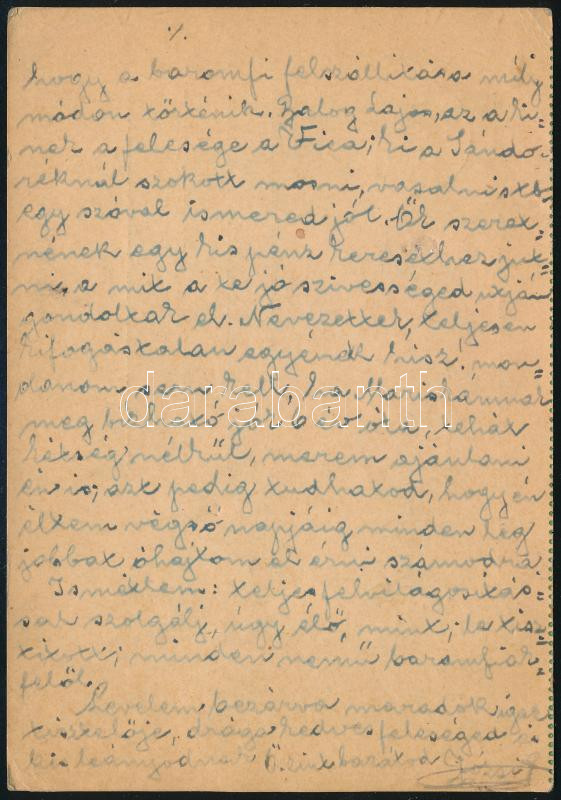 •/.
hogy a baromfi felszállitása mily
módon történik. Balog Lajos, az a ki=
nek a felesége a Fica; ki a Sándo-
réknál szokott mosni, vasalni stb
egy szóval ismered jól. Ők szeret=
nének egy kis pénz keresethez jut=
ni, a mit a te jó szivességed utján
gondoltak el. Nevezettek, teljesen
kifogástalan egyének hisz, mon=
danom sem kell, a Mariskámnak
meg bejárója 6 év óta, tehát
kétség nélkül, merem ajánlani
én is; azt pedig tudhatod, hogy én
éltem végső napjáig minden leg
jobbat óhajtom el érni számodra
Ismétlem: teljes felvilágositás=
sal szolgálj, úgy élő, mint; le tisz=
titott; minden nemű baromfiak
felől.
Levelem bezárva maradok igaz
tisztelője, drága kedves feleséged
kis leányodnak Ő. rint barátod Józsi
darabanth